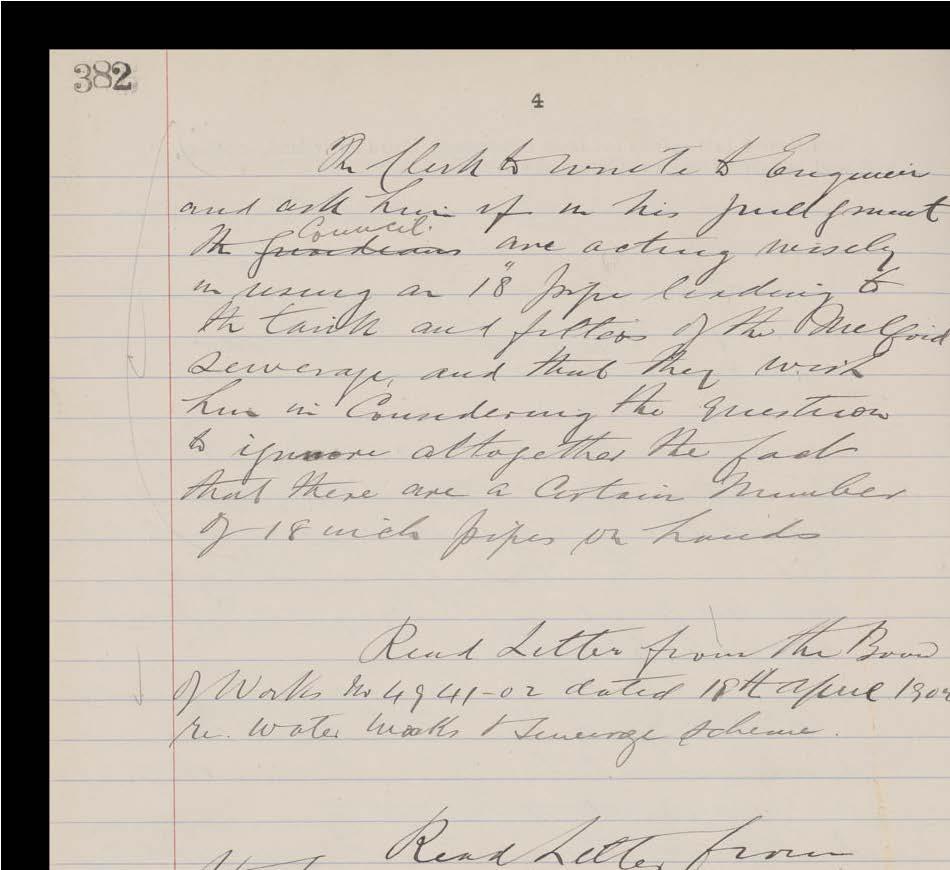 382
4
The Clerk to write to Engineer
and ask him if in his judgment
Council.
the guardians are acting wisely
in using an 18" pipe leading to
the tank and filters of the Melfoid
sewerage, and that they wish
him in Considering the question
to ignore altogether the fact
that there are a Certain Number
of 18 inch pipes on hands
Read Letter from the Board
of Works No 4941-02 dated 18th April 190
re. Water Works & Sewerage Scheme.
Read Letter from